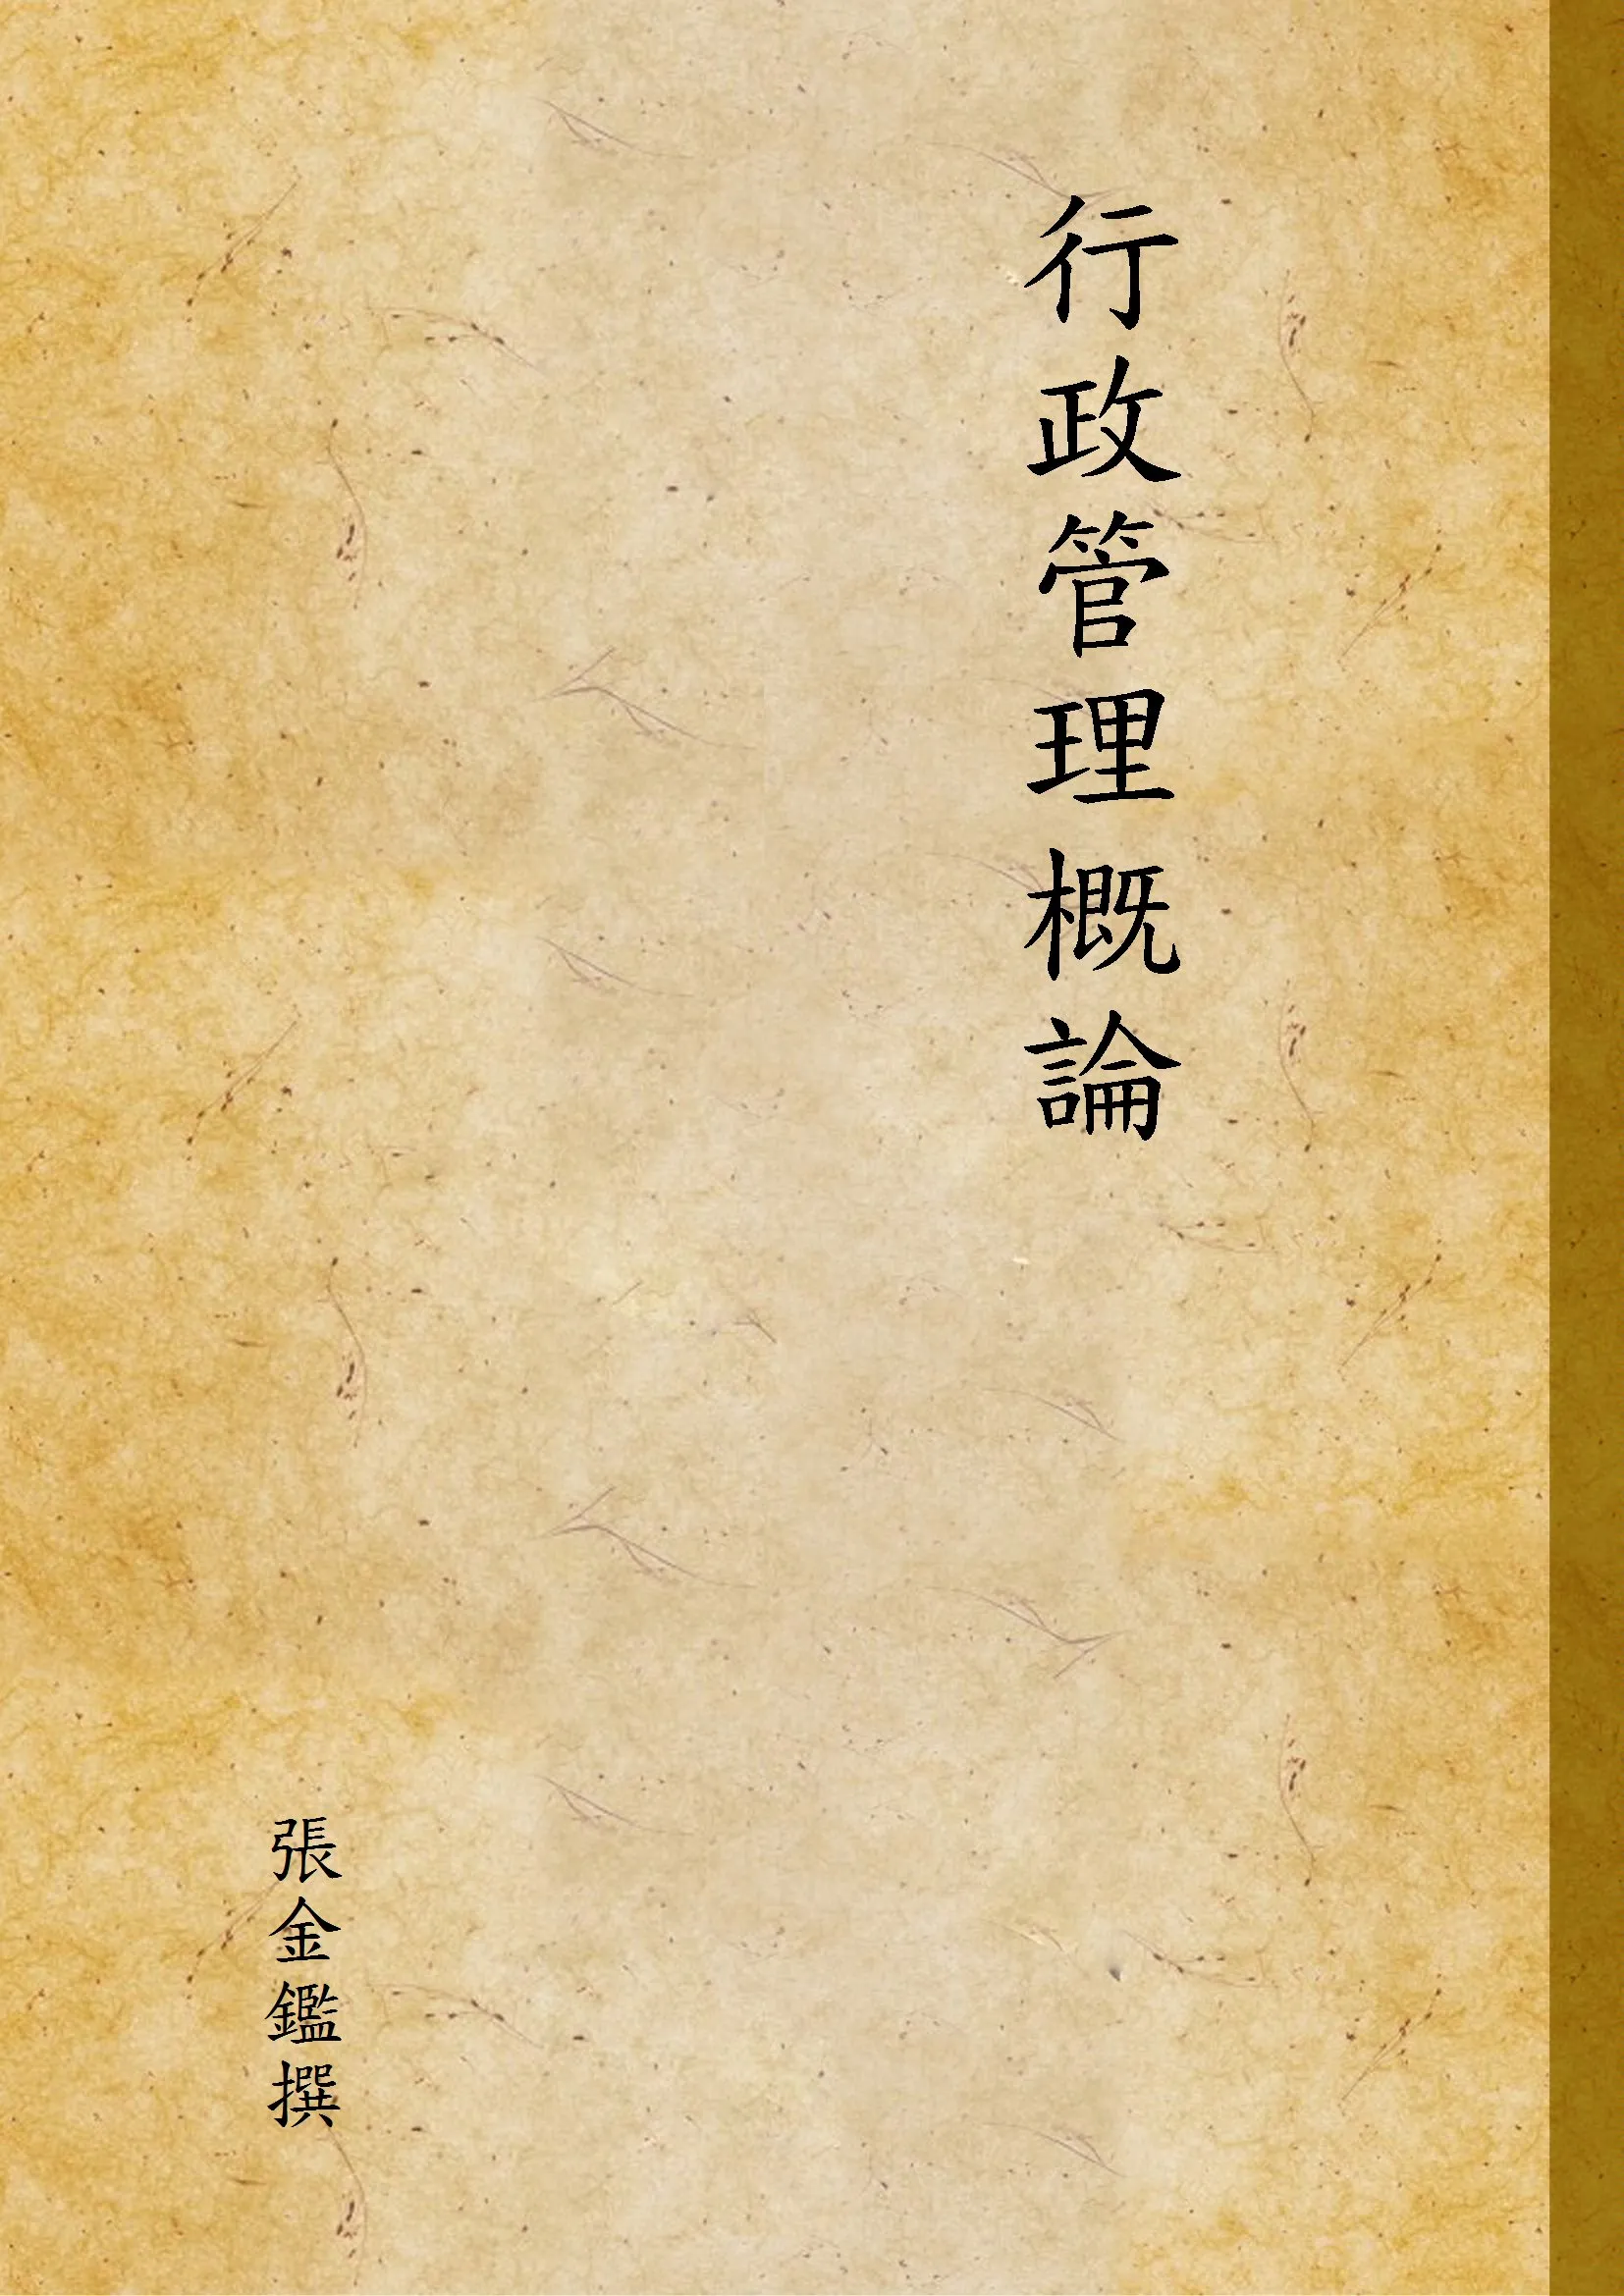 行政管理概論
張金鑑撰